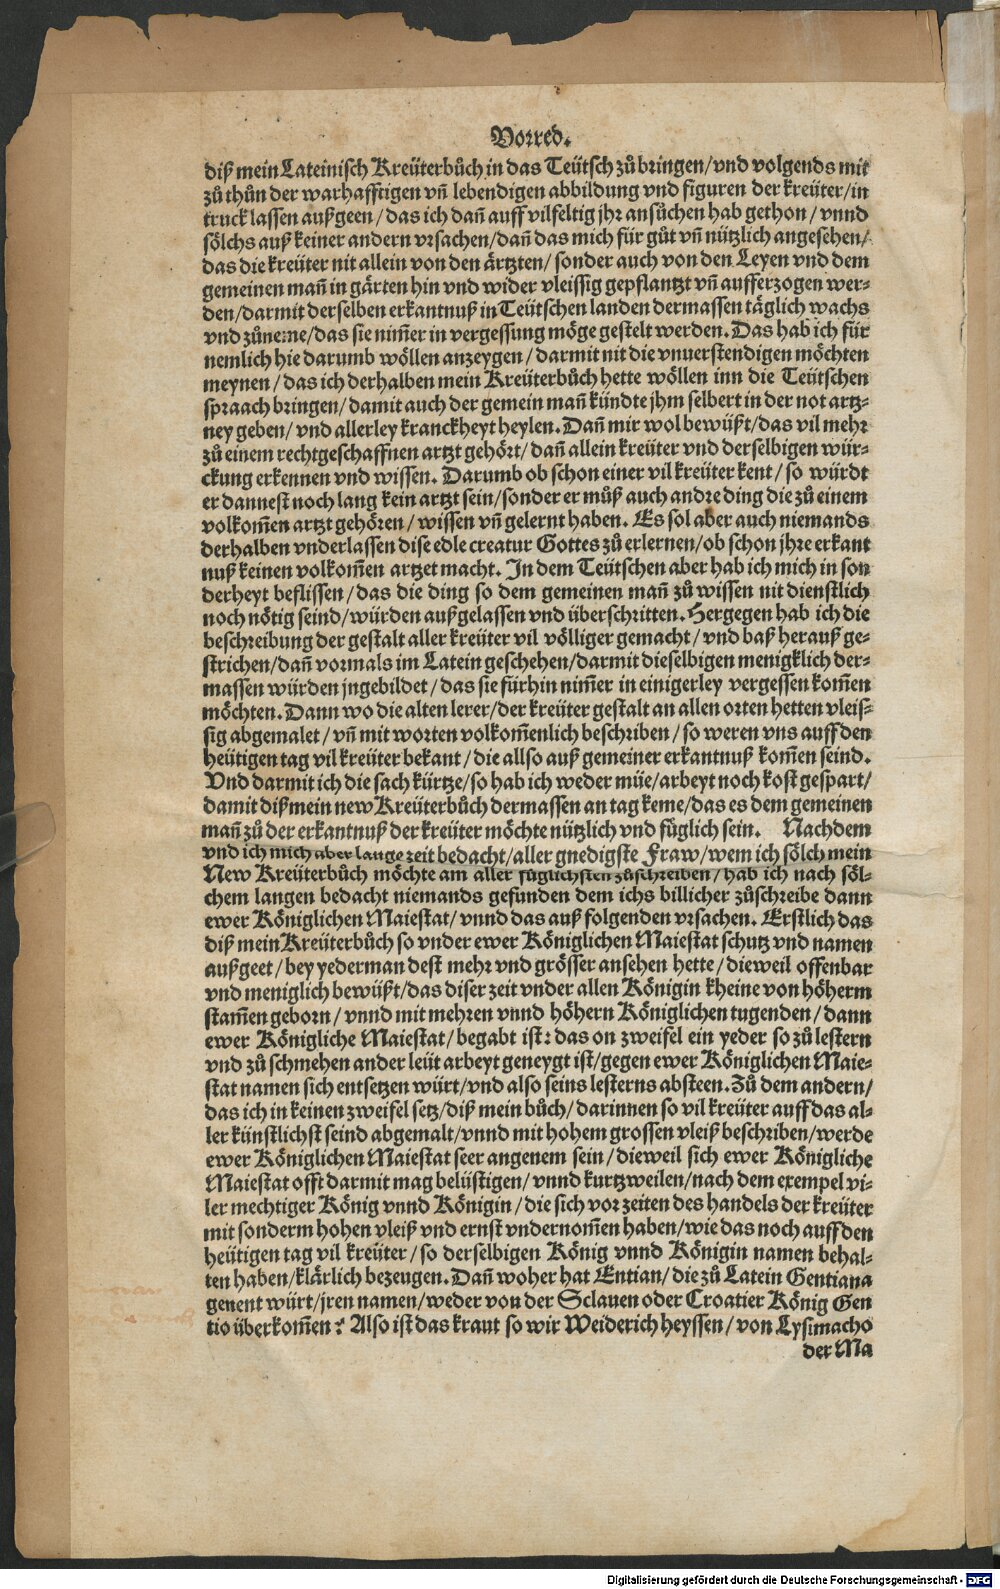 Vorred.
diß mein Lateinisch Kreüterbůch in das Teütsch zů bringen/vnd volgends mit
zů thůn der warhafftigen vñ lebendigen abbildung vnd figuren der kreüter/in
truck lassen außgeen/das ich dañ auff vilfeltig jhr ansůchen hab gethon/vnnd
sölchs auß keiner andern vrsachen/dañ das mich für gůt vñ nützlich angesehen/
das die kreüter nit allein von den ärtzten/sonder auch von den Leyen vnd dem
gemeinen mañ in gärten hin vnd wider vleissig gepflantzt vñ aufferzogen wer-
den/darmit derselben erkantnuß in Teütschen landen dermassen täglich wachs
vnd zůneme/das sie nim̃er in vergessung möge gestelt werden. Das hab ich für
nemlich hie darumb wöllen anzeygen/darmit nit die vnuerstendigen möchten
meynen/das ich derhalben mein Kreüterbůch hette wöllen inn die Teütschen
spraach bringen/damit auch der gemein mañ kündte jhm selbert in der not artz-
ney geben/vnd allerley kranckheyt heylen. Dañ mir wol bewüßt/das vil mehr
zů einem rechtgeschaffnen artzt gehört/dañ allein kreüter vnd derselbigen wür-
ckung erkennen vnd wissen. Darumb ob schon einer vil kreüter kent/so würdt
er dannest noch lang kein artzt sein/sonder er můß auch andre ding die zů einem
volkom̃en artzt gehören/wissen vñ gelernt haben. Es sol aber auch niemands
derhalben vnderlassen dise edle creatur Gottes zů erlernen/ob schon jhre erkant
nuß keinen volkom̃en artzet macht. In dem Teütschen aber hab ich mich in son
derheyt beflissen/das die ding so dem gemeinen mañ zů wissen nit dienstlich
noch nötig seind/würden außgelassen vnd überschritten. Hergegen hab ich die
beschreibung der gestalt aller kreüter vil völliger gemacht/vnd baß herauß ge-
strichen/dañ vormals im Latein geschehen/darmit dieselbigen menigklich der-
massen würden jngebildet/das sie fürhin nim̃er in einigerley vergessen kom̃en
möchten. Dann wo die alten lerer/der kreüter gestalt an allen orten hetten vleis-
sig abgemalet/vñ mit worten volkom̃enlich beschriben/so weren vns auff den
heütigen tag vil kreüter bekant/die allso auß gemeiner erkantnuß kom̃en seind.
Vnd darmit ich die sach kürtze/so hab ich weder müe/arbeyt noch kost gespart/
damit diß mein new Kreüterbůch dermassen an tag keme/das es dem gemeinen
mañ zů der erkantnuß der kreüter möchte nützlich vnd füglich sein. Nachdem
vnd ich mich aber lange zeit bedacht/aller gnedigste Fraw/wem ich sölch mein
New Kreüterbůch möchte am aller füglichsten zůschreiben/hab ich nach söl-
chem langen bedacht niemands gefunden dem ichs billicher zůschreibe dann
ewer Königlichen Maiestat/vnnd das auß folgenden vrsachen. Erstlich das
diß mein Kreüterbůch so vnder ewer Königlichen Maiestat schutz vnd namen
außgeet/bey yederman dest mehr vnd grösser ansehen hette/dieweil offenbar
vnd meniglich bewüßt/das diser zeit vnder allen Königin kheine von höherm
stam̃en geborn/vnnd mit mehren vnnd höhern Königlichen tugenden/dann
ewer Königliche Maiestat/begabt ist: das on zweifel ein yeder so zů lestern
vnd zů schmehen ander leüt arbeyt geneygt ist/gegen ewer Königlichen Maie-
stat namen sich entsetzen würt/vnd also seins lesterns absteen. Zů dem andern/
das ich in keinen zweifel setz/diß mein bůch/darinnen so vil kreüter auff das al-
ler künstlichst seind abgemalt/vnnd mit hohem grossen vleiß beschriben/werde
ewer Königlichen Maiestat seer angenem sein/dieweil sich ewer Königliche
Maiestat offt darmit mag belüstigen/vnnd kurtzweilen/nach dem exempel vi-
ler mechtiger König vnnd Königin/die sich vor zeiten des handels der kreüter
mit sonderm hohen vleiß vnd ernst vndernom̃en haben/wie das noch auff den
heütigen tag vil kreüter/so derselbigen König vnnd Königin namen behal-
ten haben/klärlich bezeugen. Dañ woher hat Entian/die zů Latein Gentiana
genent würt/jren namen/weder von der Sclauen oder Croatier König Gen
tio überkom̃en? Also ist das kraut so wir Weiderich heyssen/von Lysimacho
der Ma
Digitalisierung gefördert durch die Deutsche Forschungsgemeinschaft - DFG